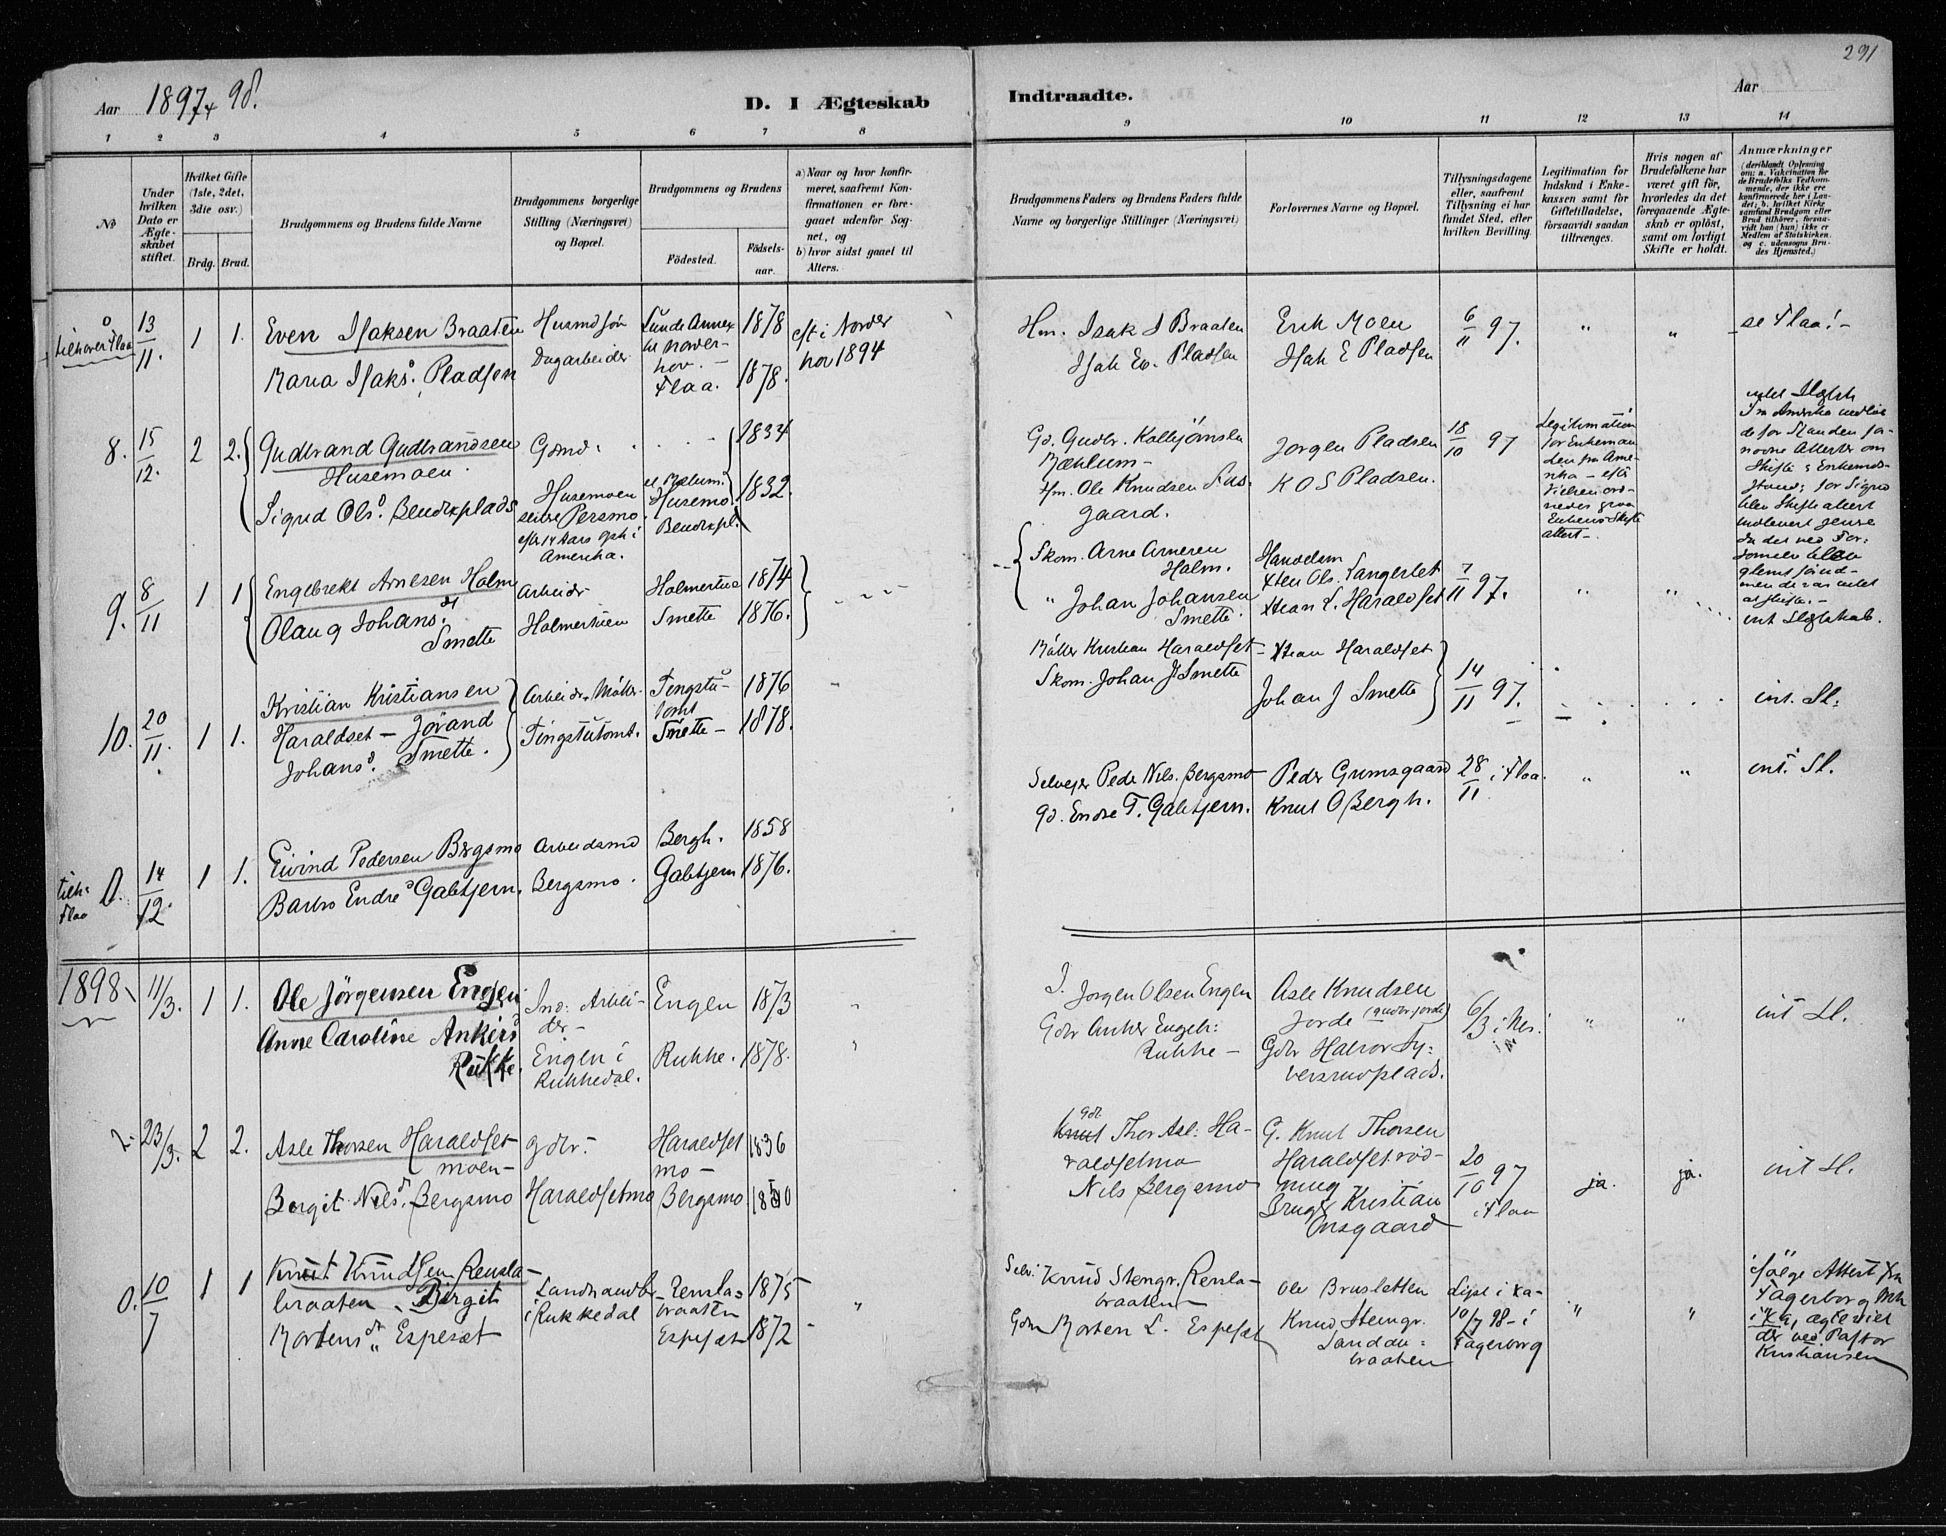 291
Aar 1897 + 98.
D. I Ægteskab
Indtraadte.
Aar
1 2 3 4 5 6 7 8 9 10 11 12 13 14
No
Under hvilken Dato er Ægteskabet stiftet.
Hvilket Gifte (1ste, 2det, 3die osv.)
Brdg. Brud.
Brudgommens og Brudens fulde Navne
Brudgommens borgerlige Stilling (Næringsvei) og Bopæl.
Brudgommens og Brudens
Födested.
Födsels-aar.
a) Naar og hvor konfirmeret, saafremt Konfirmationen er foregaaet udenfor Sognet, og
b) hvor sidst gaaet til Alters.
Brudgommens Faders og Brudens Faders fulde Navne og borgerlige Stillinger (Næringsvei)
Forlovernes Navne og Bopæl.
Tillysningsdagene eller, saafremt Tillysning ei har fundet Sted, efter hvilken Bevilling.
Legitimation for Indskud i Enkekassen samt for Giftetilladelse, forsaavidt saadan tiltrænges.
Hvis nogen af Brudefolkene har været gift för, hvorledes da det foregaaende Ægteskab er oplöst, samt om lovligt Skifte er holdt.
Anmærkninger
(deriblandt Oplysning om: a. Vakcination for de Brudefolks Vedkommende, der ikke ere konfirmerede her i Landet; b. hvilket Kirkesamfund Brudgom eller Brud tilhörer, forsaavidt han (hun) ikke er Medlem af Statskirken, og c. udensogns Brudes Hjemsted.)
0 tilhører Flaa 13/11. 1 1. Even Isaksen Braaten
Maria Isaksd. Pladsen
Husmdsøn
Dagarbeider
Lunde Annex til Norderhov. –
Flaa.
1878
1878.
cft i Norderhov 1894
Hm. Isak I Braaten
Isak Ev. Pladsen
Erik Moen
Isak E Pladsen
6/11 97. " " se Flaa! –
8. 15/12. 2 2. Gudbrand Gudbrandsen
Husemoen.
Sigrid Olsd. Bendixplads
Gdmd.
Husemoen
Persmo.
efter 14 Aars oph i Amerika.
Husemo.
Bendixpl.
1834
1832.
Gd. Gudbr. Kolbjørnsen
Mæhlum –
Hm. Ole Knudsen
gaard.
Jørgen Pladsen
K O S Pladsen.
18/10 97
Legitimation for Enkemanden fra Amerika – efter Vielsen
attest –.
9. 8/11 1 1 Engebrekt Arnesen Holm
Olaug Johansdt.
Smette
Arbeider
Holmertuen
Holmertue
Smette
1874
1876.
Skom. Arne Arnesen
Holm.
" Johan Johansen
Smette.
Handelsm
Xten Ols. Langerbet
Xtian L. Haraldset
7/11 97. " " int Slægtskab.
10. 20/11. 1 1. Kristian Kristiansen
Haraldset – Jørand
Johansd. Smette.
Arbeider, Møller
Tingstutomt.
Tingstutomt
Smette –
1876
1878.
Møller Kristian Haraldset –
Skom. Johan J Smette
Xtian Haraldset
Johan J Smette
14/11 97. int. Sl.
tilh. Flaa 0. 14/12. 1 1. Eivind Pedersen Bergsmo
Barbro Endred Gabtjern.
Arbeidsmd
Bergsmo.
Bergh.
Gabtjern
1858
1876.
Selvejer Peder Nils. Bergsmo
Gd. Endre T. Gabtjern.
Peder Grimsgaard
Knut O Bergh.
28/11 i Flaa. " " int. Sl.
1898 11/3. 1 1. Ole Jörgensen Engen
Anne Caroline Ankersd
Rukke.
Ind: Arbeider –
Engen i Rukkedal.
Engen
Rukke.
1873
1878.
I. Jørgen Olsen Engen
Gdbr Anker Engeb:
Rukke –
Asle Knudsen
Jorde (gudbr. jorde)
Gdbr Halvor Syversrudplads.
6/3 i Nes. " " int Sl.
2. 23/3. 2 2. Asle Thorsen Haraldset
moen –
Bergit Nilsdt. Bergsmo
gdbr. –
Haraldsetmo
Haraldset
mo –
Bergsmo
1836
Gdbr. Thor Asl. Haraldsetmo
Nils Bergsmo
G. Knut Thorsen
Haraldsetrødning
Bruger Kristian
Onsgaard
20/10 97 i Flaa ja. ja. int Sl.
0. 10/7 1 1 Knut Knudsen Remlabraaten, Birgit
Mortensdt Espeset
Landhandler
i Rukkedal
Remlabraaten
Espeset
1875
1872
Selv: Knud Stengr. Remlabraaten –
Gdm Morten L. Espeset
Ole Brusletten
Knud Steingr.
Sandaabraaten
Lyst i Xa.
10/7 98 – i Fagerborg
" " ifølge Attest fra Fagerborg Mk i Xa, ægteviet der ved Pastor Kristiansen